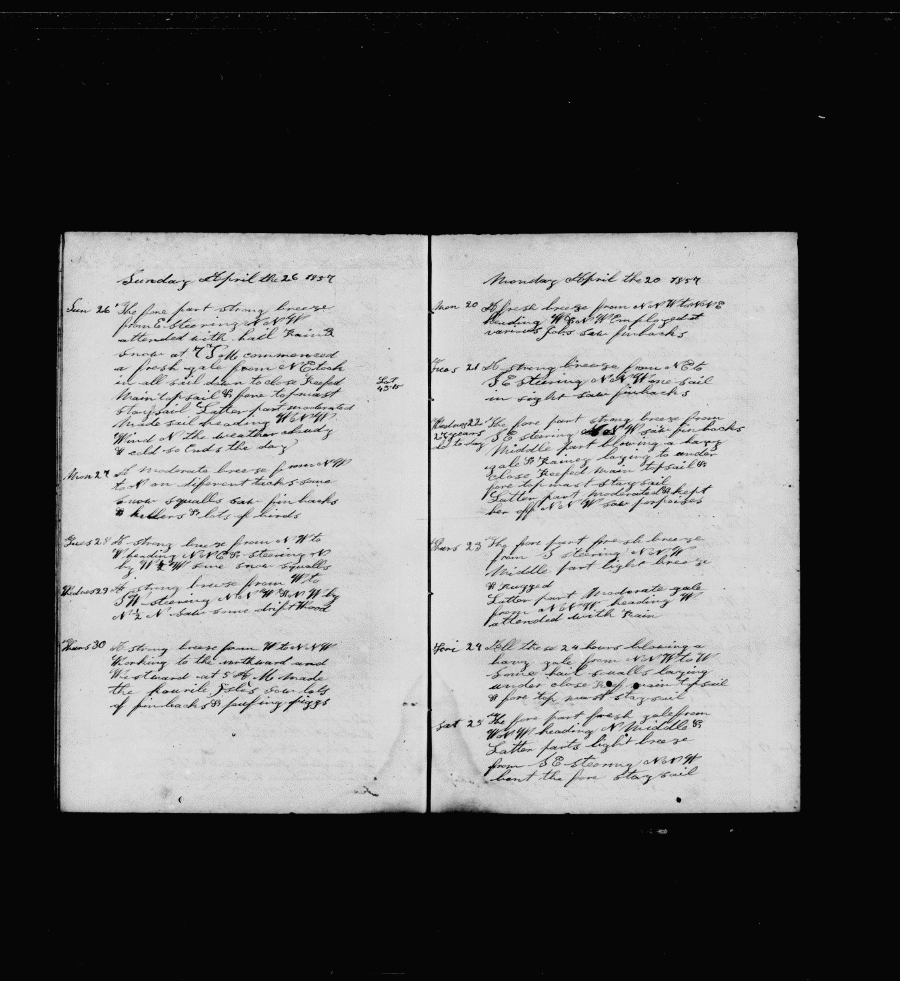 Sunday April the 26 1857
Sun 26 The fore part strong breeze
from E Steering N N W
attended with hail Rain &
Snow at 7 P M commenced
a fresh gale from N E took
in all sail down to close Reefed
Main topsail & fore topmast
Lat
staysail Latter part moderated
Made sail heading W N W
Wind N the weather cloudy
& cold so Ends the day
Mon 27 A moderate breeze from N W
to N on diferent tacks some
snow squalls saw finbacks
& killers & lots of birds
Tues 28 A strong breeze from N W to
W heading N N E & steering N
by W & W some snow squalls
Wednes 29 A strong breeze from W to
S W steering N N W & N W by
N 1/2 N saw some drift Wood
Thurs 30 A strong breeze from W to N N W
Working to the northward and
Westward at 5 P M Made
the Isles saw lots
of finbacks & pufing piggs
Monday April the 20 1857
Mon 20 A fresh breeze from N N W to N N E
heading W & N W Employed at
various Jobs saw finbacks
Tues 21 A strong breeze from N E to
S E steering N N W one sail
in sight saw finbacks
Wednes 22 The fore part strong breeze from
24 years S E steering N W saw finbacks
old to day Middle part blowing a havy
gale & Rainey laying to under
close Reefed main topsail &
fore top mast stay sail
Latter part moderated & kept
her off N N W saw porpoises
Thurs 23 The fore part fresh breeze
from S steering N N W
Middle part light breeze
& Rugged
Latter part Moderate gale
from N N W heading W
attended with Rain
Fri 24 All these 24 hours blowing a
havy gale from N N W to W
some hail squalls laying
under close Reef main topsail
& fore top mast stay sail
Sat 25 The fore part fresh gale from
W N W heading N Middle &
Latter parts light breeze
from S E steering N N W
bent the fore stay sail